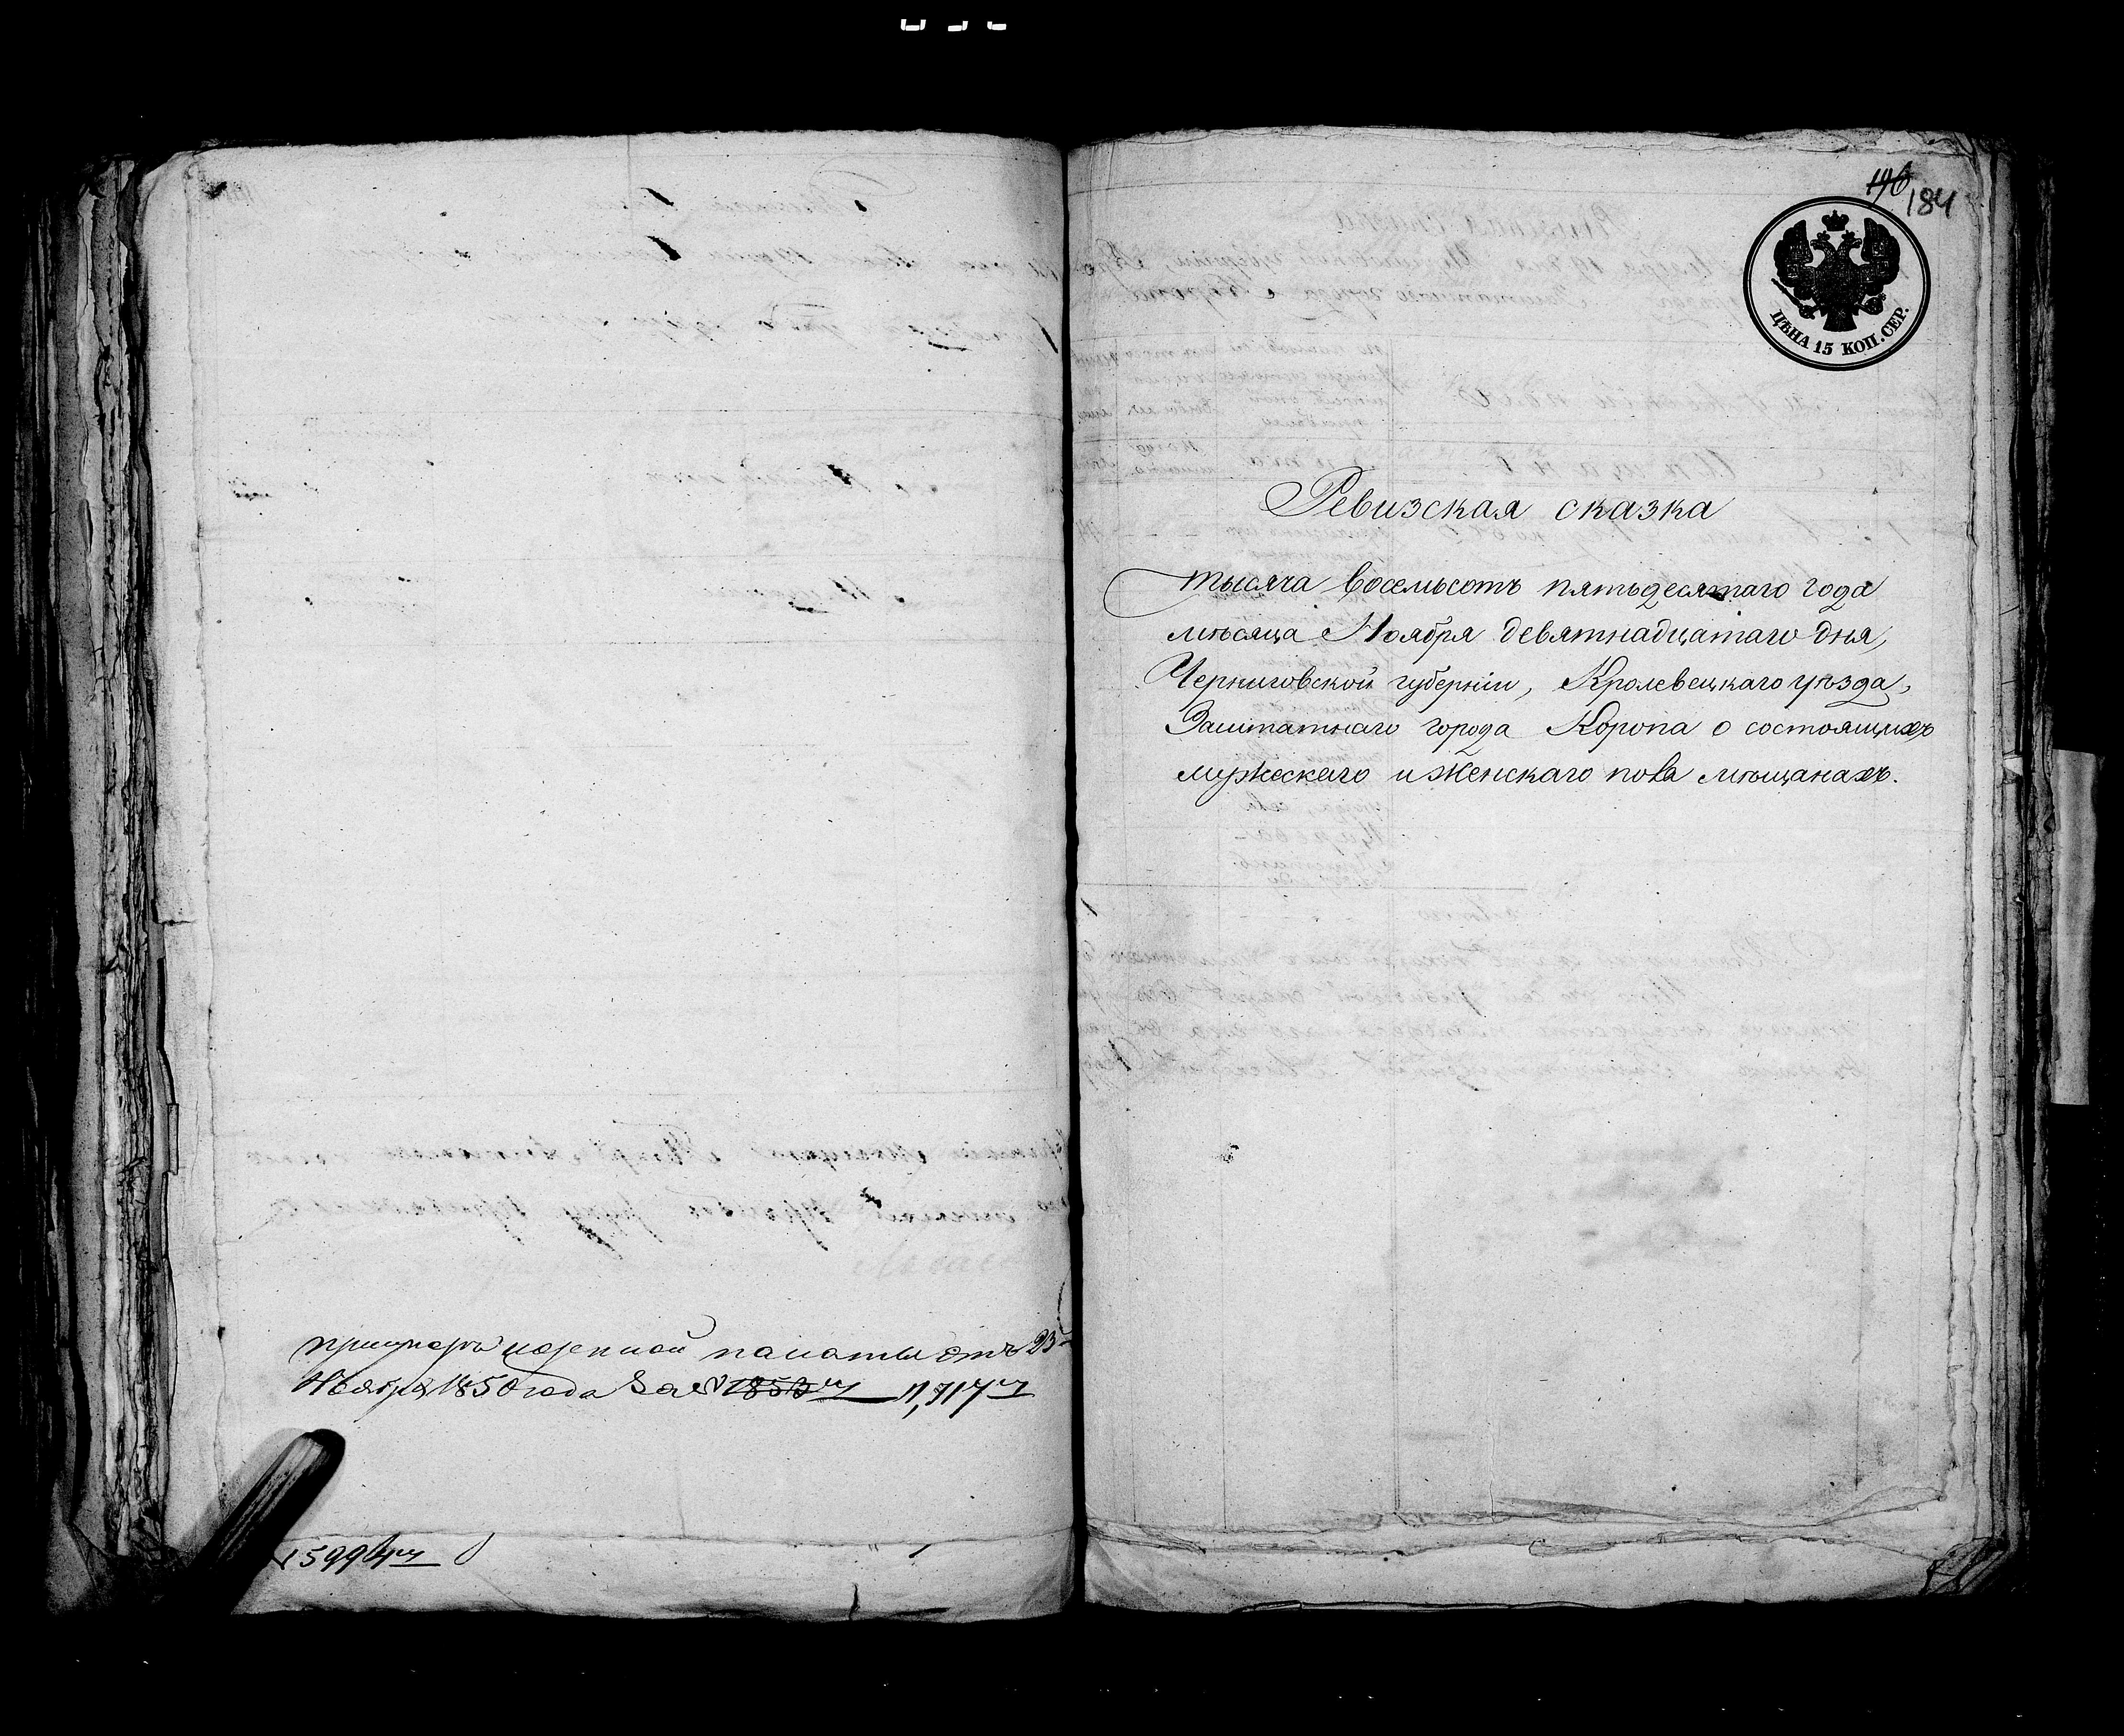 при указе казенной палаты отъ 23
Ноября 1850 года за № 1853 11,717
15994
146
184
ЦѢНА 15 КОП. СЕР.
Ревизская сказка
тысяча восемьсотъ пятьдесятаго года
мѣсяца Ноября девятнадцатаго дня,
Черниговской губерніи, Кролевецкаго уѣзда,
Заштатнаго города Коропа о состоящихъ
мужескаго и женскаго пола мѣщанахъ.